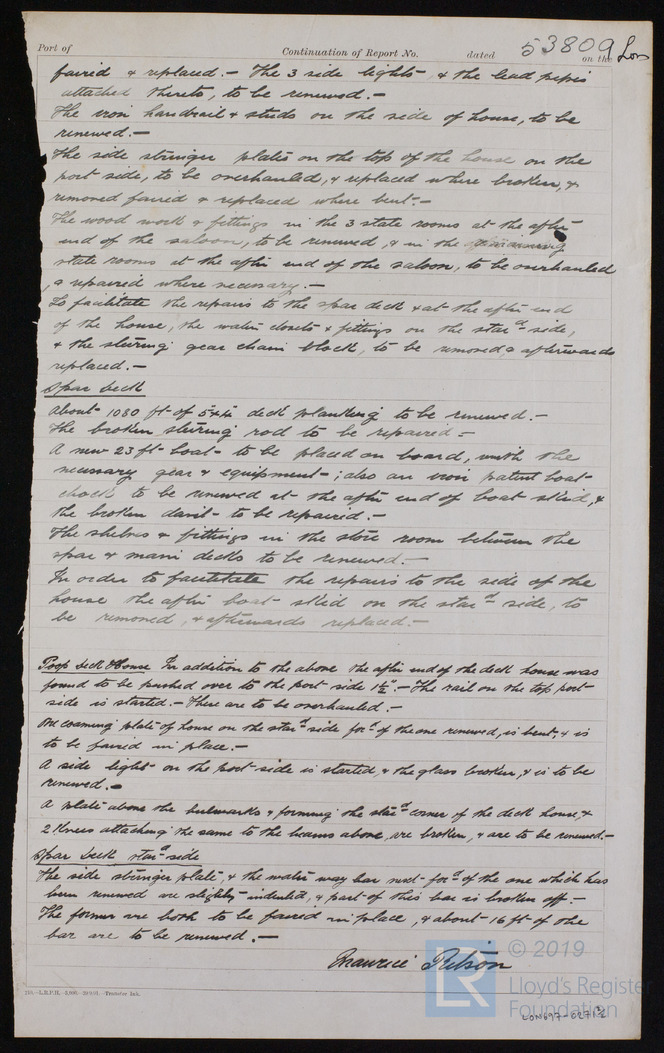 Port of Continuation of Report No. dated 53809 on the Lon
faired & replaced.— The 3 side lights & the lead pipes
attached thereto, to be renewed.—
The iron handrail & studs on the side of house, to be
renewed.—
The side stringer plates on the top of the house on the
port side, to be overhauled, & replaced where broken, &
removed faired & replaced where bent.—
The wood work & fittings in the 3 state rooms at the after
end of the saloon, to be renewed, & in the
state rooms at the after end of the saloon, to be overhauled
& repaired where necessary.—
To facilitate the repairs to the spar deck & at the after end
of the house, the water closets & fittings on the starᵈ side,
& the steering gear chain block, to be removed & afterwards
replaced.—
Spar deck
About 1080 ft of 5x4 deck planking to be renewed.—
The broken steering rod to be repaired—
A new 23 ft boat to be placed on board, with the
necessary gear & equipment; also an iron patent boat
chock to be renewed at the after end of boat skid, &
the broken davit to be repaired.—
The shelves & fittings in the store room between the
spar & main decks to be renewed.—
In order to facilitate the repairs to the side of the
house the after boat skid on the starᵈ side, to
be removed, & afterwards replaced.—
Poop deck House In addition to the above the after end of the deck house was
found to be pushed over to the port side 1½".— The rail on the top port
side is started.— These are to be overhauled.—
The coaming plate of house on the starᵈ side forᵈ of the one renewed, is bent, & is
to be faired in place.—
A side light on the port side is started, & the glass broken, & is to be
renewed.—
A plate above the bulwarks & forming the starᵈ corner of the deck house, &
2 knees attaching the same to the beams above, are broken, & are to be renewed.—
Spar deck starᵈ side
The side stringer plate, & the water way bar next forᵈ of the one which has
been renewed are slightly indented, & part of this bar is broken off.—
The former are both to be faired in place, & about 16 ft of the
bar are to be renewed.—
Maurice Ritson
© 2019
LR Lloyd's Register
Foundation
LON697-0271½